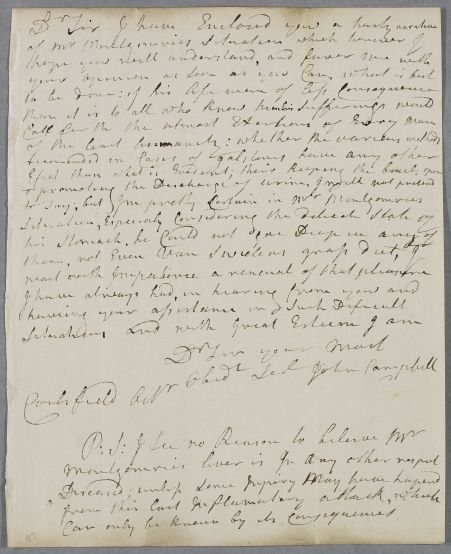 Dr Sir I have Enclosed you a hasty narrative
of Mr Montgomeries Situation which however I
hope you will understand, and favor me with
your opinion as soon as you Can, what is best
to be done: if his life were of less Consequence
than it is to all who know him his Sufferings would
Call for the utmost Exertions of Every man
of the least humanity: whether the various methods
recommended in Cases of have any other
Effect than what is Evident; their keeping the bowels open
& promoting the Discharge of urine, I would not pretend
to say, but I'm pretty Certain in Mr Montgomeries
Situation, Especially Considering the delicate State of
his Stomach, he Could not any of
them, not Even Van Swietens grass diet, I
wait with Impatience a renewal of that pleasure
I have always had, in hearing from you and
having your assistance in Such Difficult
Situations and with Great Esteem I am
Dr Sir your Most
Obedt Set John Campbell
P: S: I See no Reason to believe Mr
Montgomeries liver is In any other respect
Diseased, unless Some Injury May have hapend
from this last Inflamatory attack, which
Can only be known by its Consequences